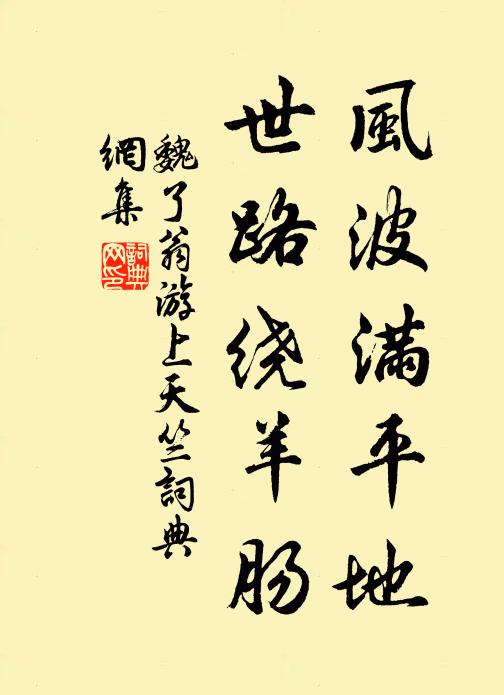 風波滿平地
世路绕羊肠
魏了翁游上天竺詞典
網集
詞典网印